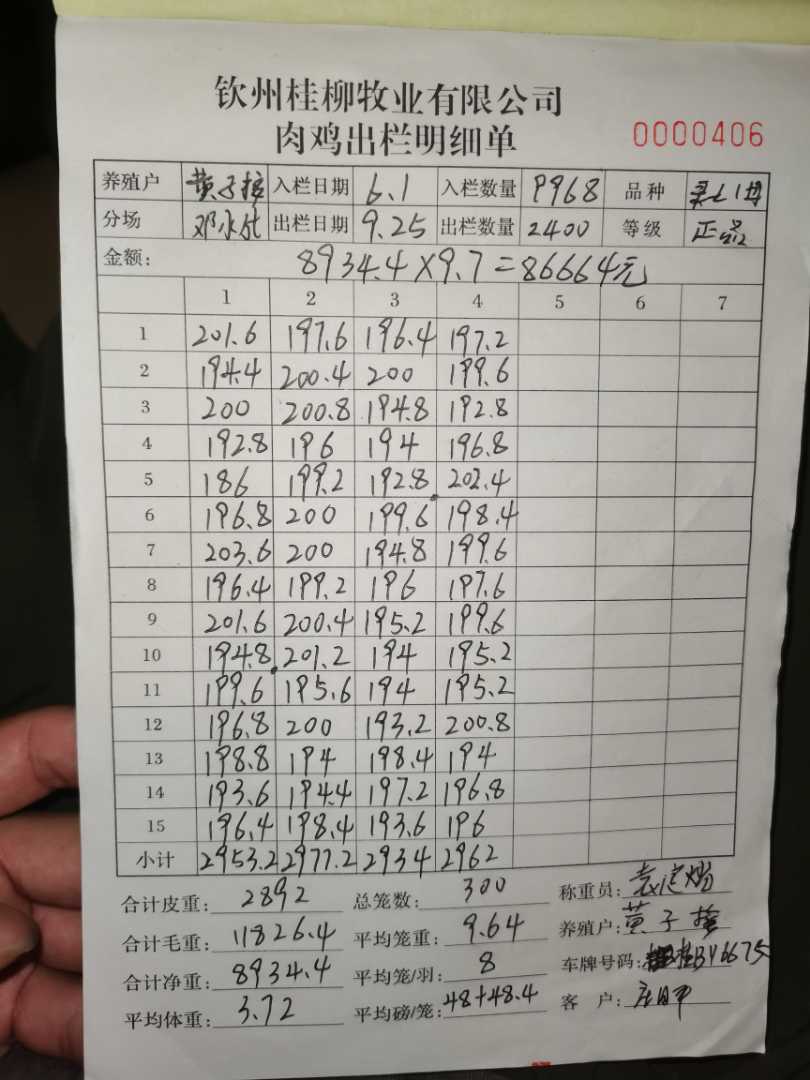 钦州桂柳牧业有限公司
肉鸡出栏明细单 0000406
养殖户 黄子 入栏日期 6.1 入栏数量 9968 品种
分场 邓永 出栏日期 9.25 出栏数量 2400 等级 正品
金额: 8934.4×9.7=86664元
1 2 3 4 5 6 7
1 201.6 197.6 196.4 197.2
2 194.4 200.4 200 199.6
3 200 200.8 194.8 192.8
4 192.8 196 194 196.8
5 186 199.2 192.8 202.4
6 196.8 200 199.6 198.4
7 203.6 200 194.8 199.6
8 196.4 199.2 196 197.6
9 201.6 200.4 195.2 199.6
10 194.8 201.2 194 195.2
11 199.6 195.6 194 195.2
12 196.8 200 193.2 200.8
13 198.8 194 198.4 194
14 193.6 194.4 197.2 196.8
15 196.4 198.4 193.6 196
小计 2953.2 2977.2 2934 2962
合计皮重: 2892 总笼数: 300 称重员:
合计毛重: 11826.4 平均笼重: 9.64 养殖户: 黄子
合计净重: 8934.4 平均笼/羽: 8 车牌号码: 桂BY6675
平均体重: 3.72 平均磅/笼: 48+48.4 客 户: